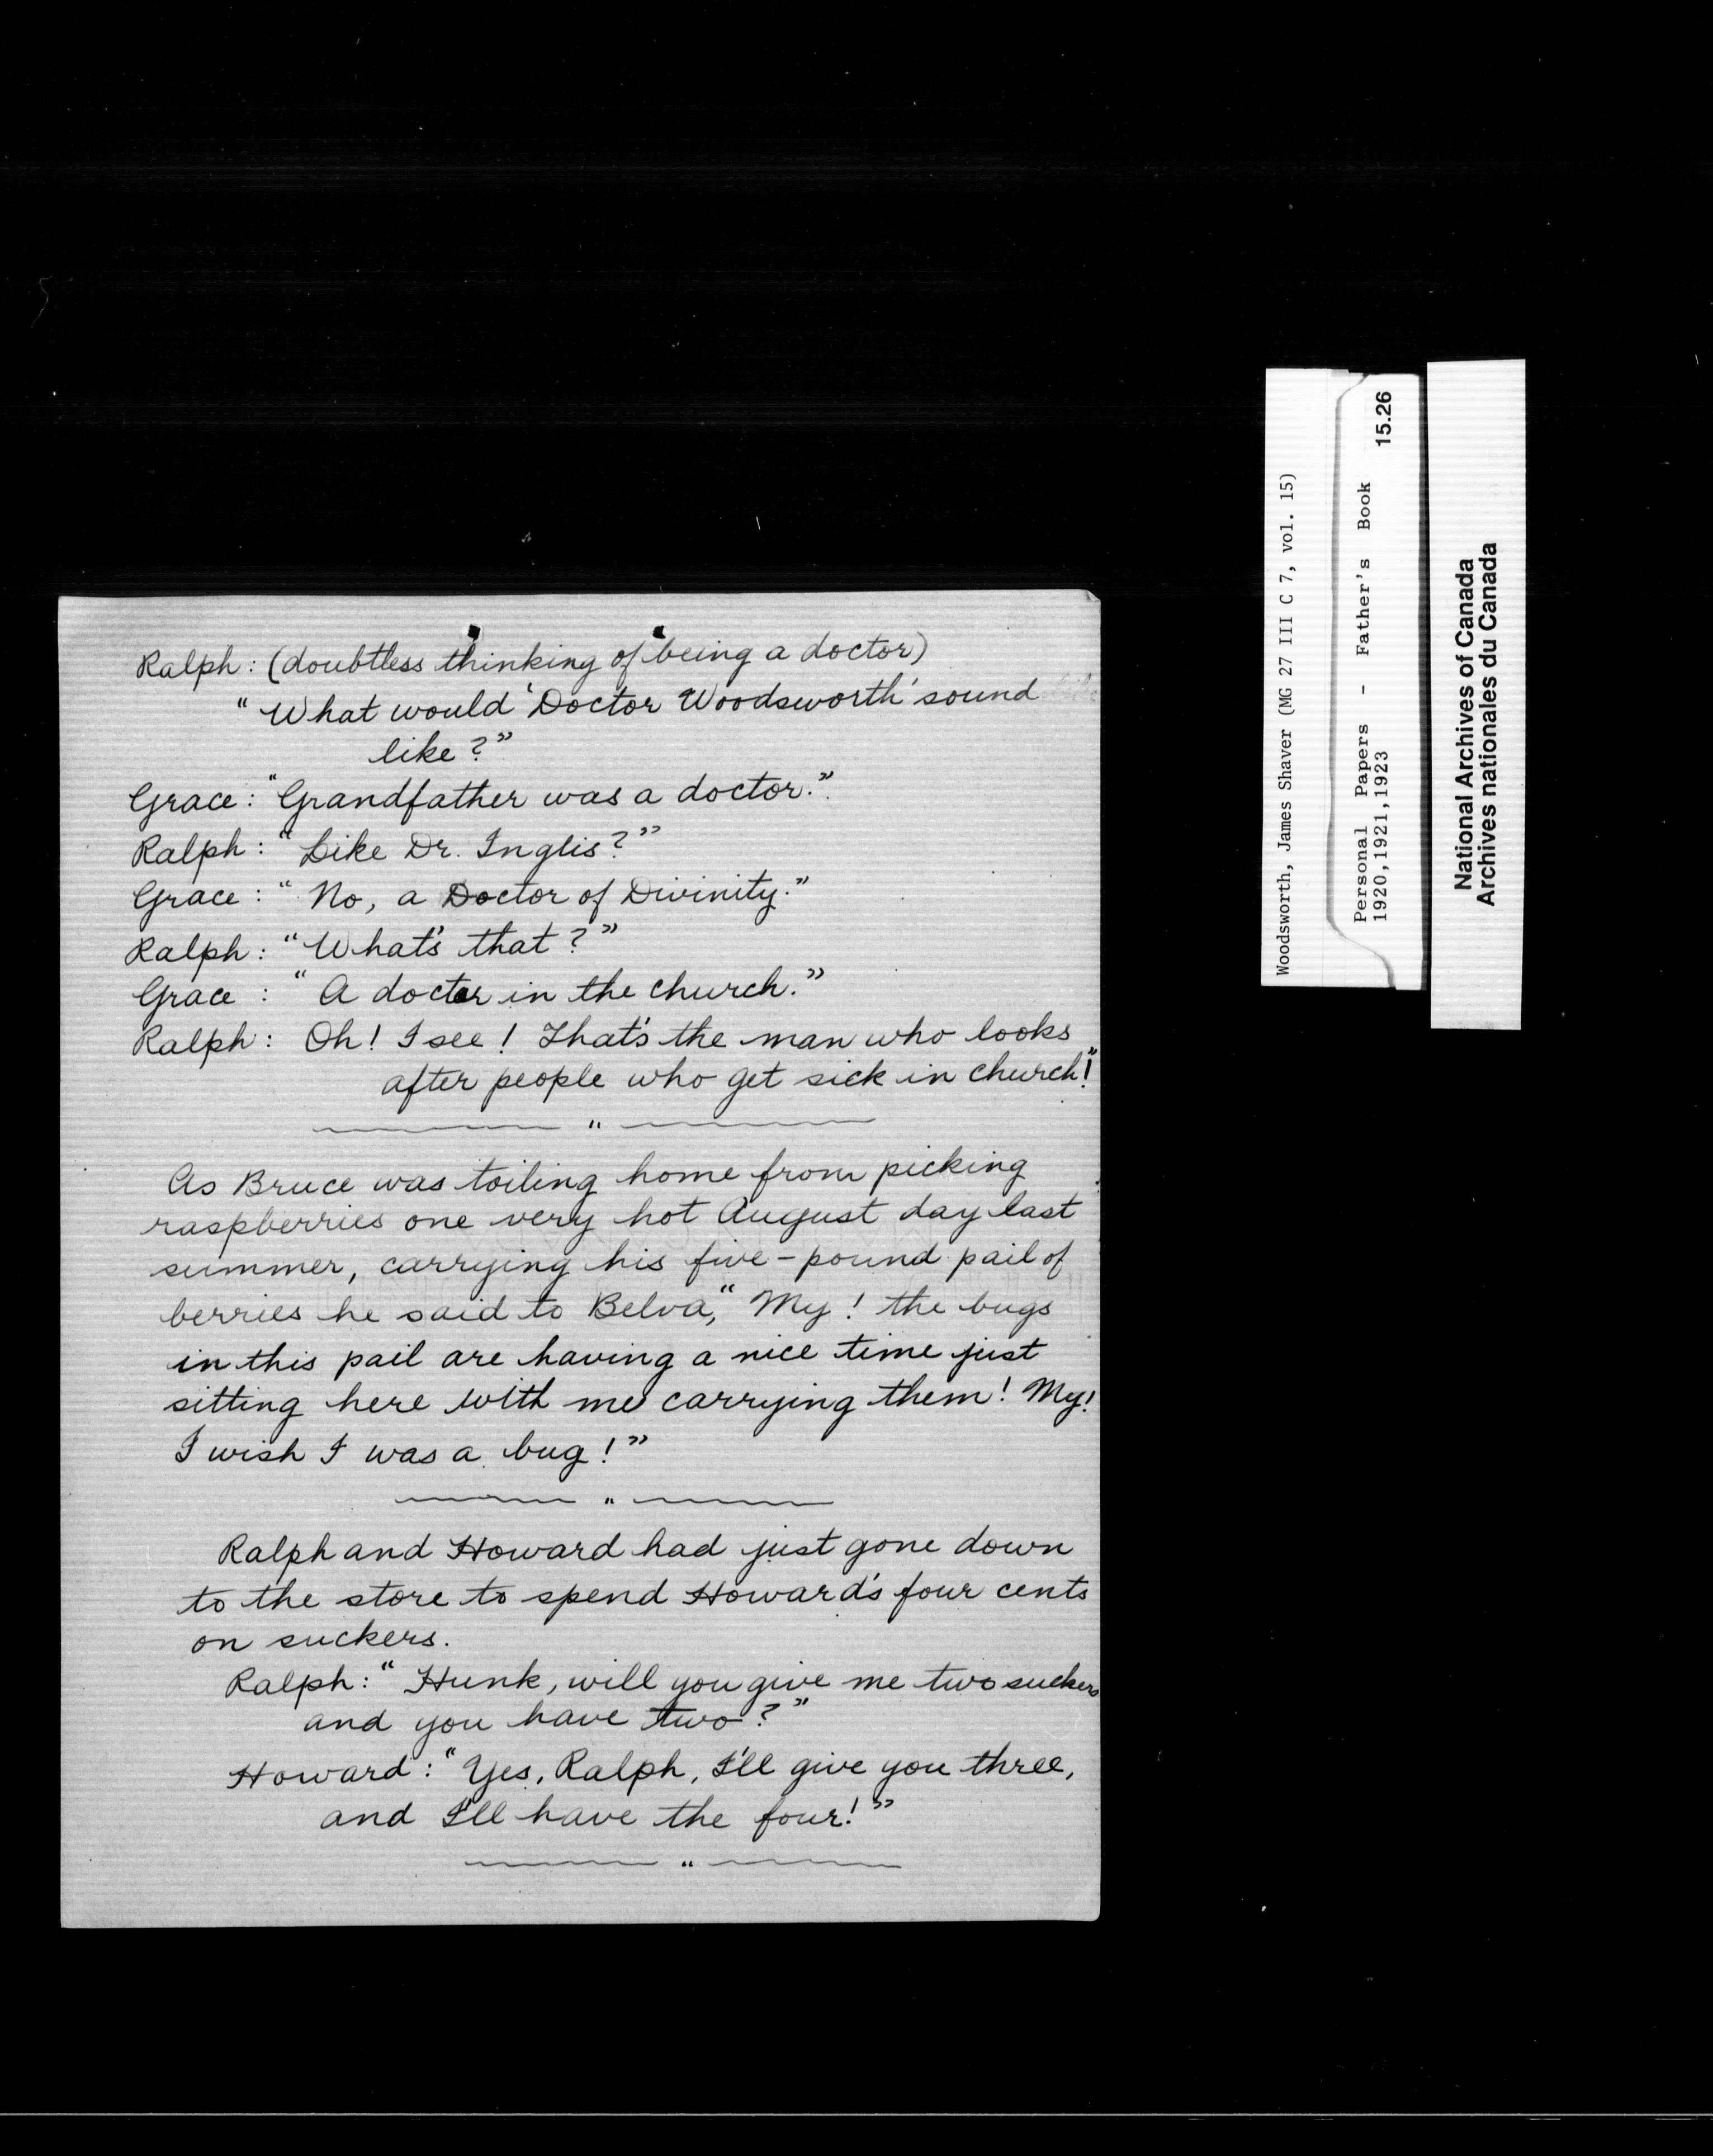 Ralph: (doubtless thinking of being a doctor)
"What would 'Doctor Woodsworth' sound
like?"
Grace: "Grandfather was a doctor."
Ralph: "Like Dr. Inglis?"
Grace: "No, a Doctor of Divinity."
Ralph: "What's that?"
Grace: "A doctor in the church."
Ralph: Oh! I see! That's the man who looks
after people who get sick in church!"
"
As Bruce was toiling home from picking
raspberries one very hot August day last
summer, carrying his five-pound pail of
berries he said to Belva, "My! the bugs
in this pail are having a nice time just
sitting here with me carrying them! My!
I wish I was a bug!"
"
Ralph and Howard had just gone down
to the store to spend Howard's four cents
on suckers.
Ralph: "Hunk, will you give me two suckers
and you have two?"
Howard: "Yes, Ralph, I'll give you three,
and I'll have the four!"
"
Woodsworth, James Shaver (MG 27 III C 7, vol. 15)
Personal Papers - Father's Book 15.26
1920,1921,1923
National Archives of Canada
Archives nationales du Canada